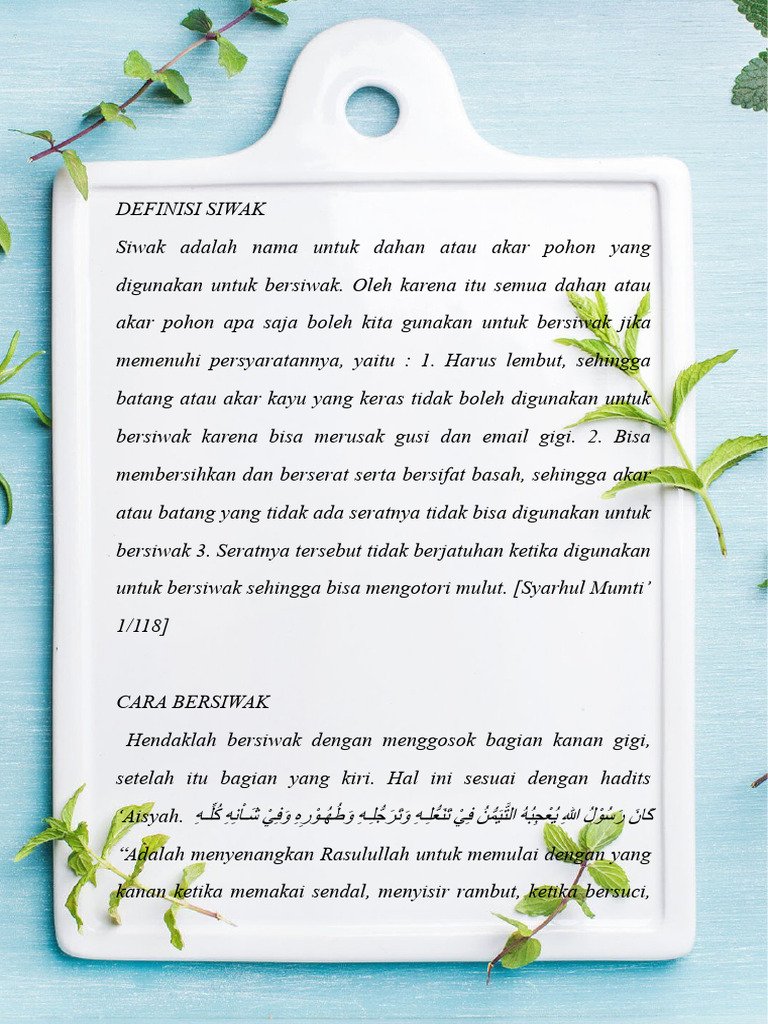 DEFINISI SIWAK
Siwak adalah nama untuk dahan atau akar pohon yang
digunakan untuk bersiwak. Oleh karena itu semua dahan atau
akar pohon apa saja boleh kita gunakan untuk bersiwak jika
memenuhi persyaratannya, yaitu : 1. Harus lembut, sehingga
batang atau akar kayu yang keras tidak boleh digunakan untuk
bersiwak karena bisa merusak gusi dan email gigi. 2. Bisa
membersihkan dan berserat serta bersifat basah, sehingga akar
atau batang yang tidak ada seratnya tidak bisa digunakan untuk
bersiwak 3. Seratnya tersebut tidak berjatuhan ketika digunakan
untuk bersiwak sehingga bisa mengotori mulut. [Syarhul Mumti’
1/118]
CARA BERSIWAK
Hendaklah bersiwak dengan menggosok bagian kanan gigi,
setelah itu bagian yang kiri. Hal ini sesuai dengan hadits
‘Aisyah. كَانَ رَسُوْلُ اللهِ يُعْجِبُهُ التَّيَمُّنُ فِيْ تَنَعُّلِهِ وَتَرَجُّلِهِ وَطُهُوْرِهِ وَفِيْ شَأْنِهِ كُلِّهِ
“Adalah menyenangkan Rasulullah untuk memulai dengan yang
kanan ketika memakai sendal, menyisir rambut, ketika bersuci,